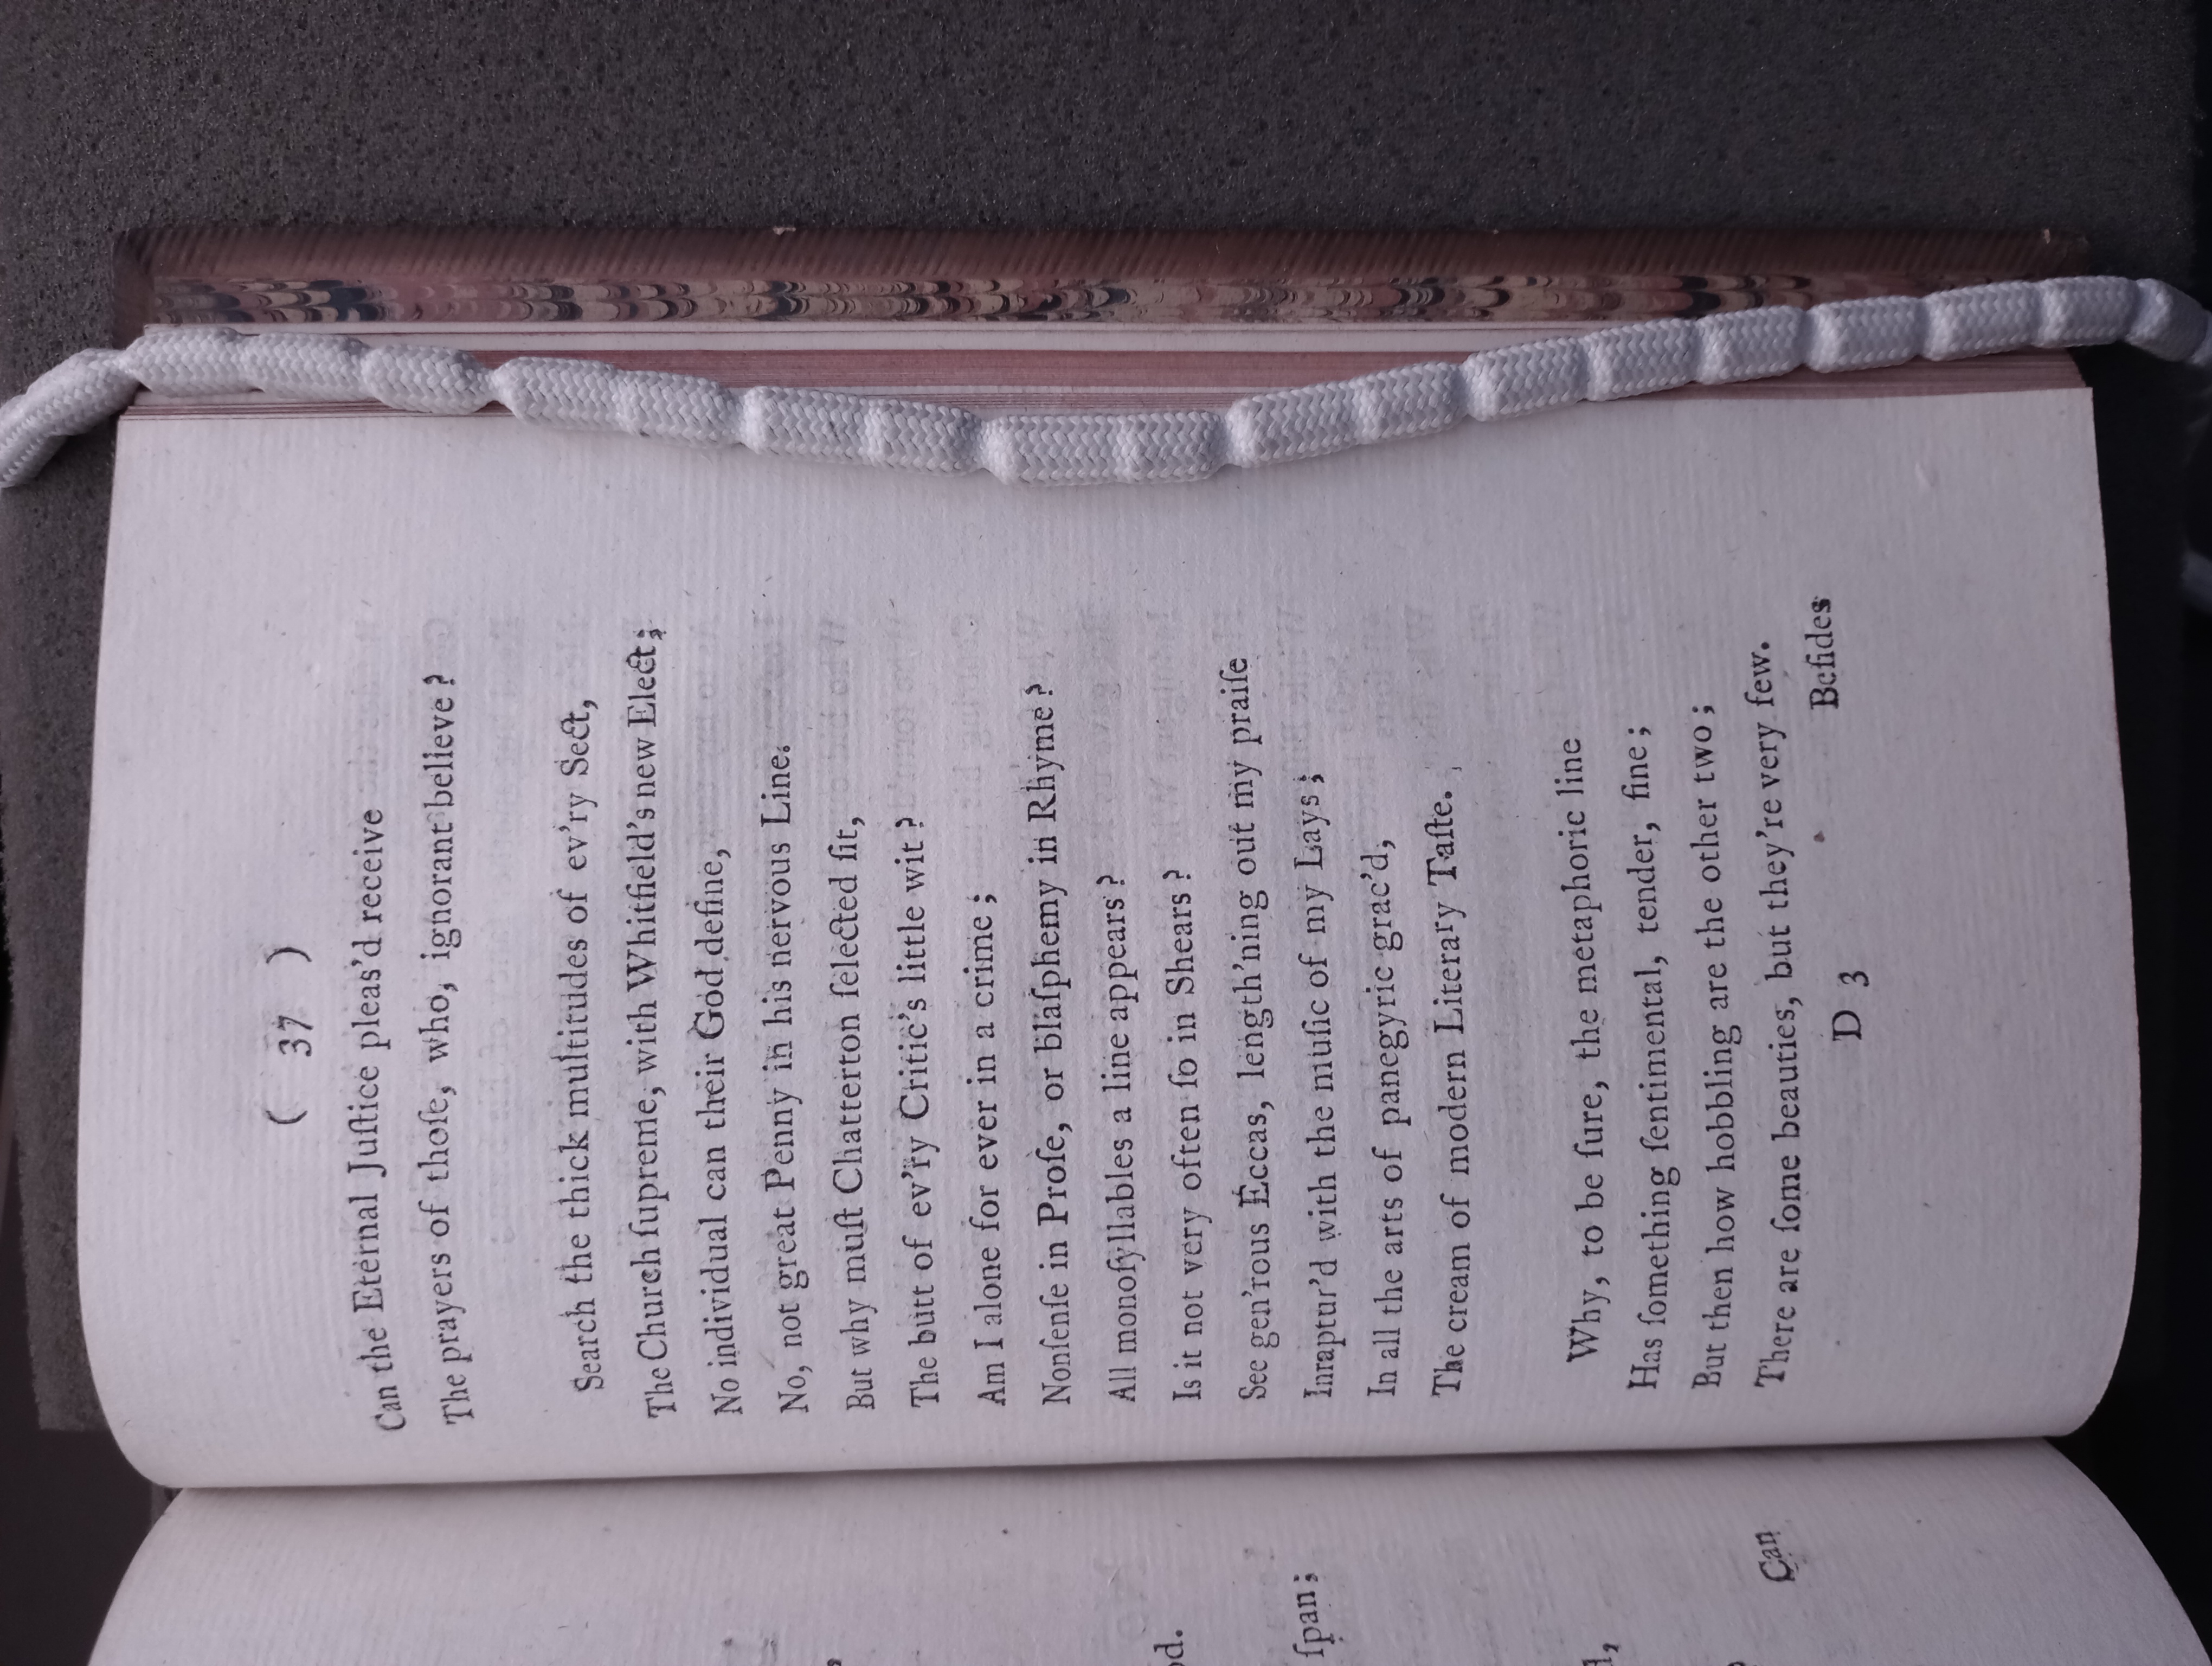 ( 37 )
Can the Eternal Juſtice pleas'd receive
The prayers of thoſe, who, ignorant believe?
Search the thick multitudes of ev'ry Sect,
The Church ſupreme, with Whitfield's new Elect;
No individual can their God define,
No, not great Penny in his nervous Line.
But why muſt Chatterton ſelected ſit,
The butt of ev'ry Critic's little wit?
Am I alone for ever in a crime;
Nonſenſe in Proſe, or blaſphemy in Rhyme?
All monoſyllables a line appears?
Is it not very often ſo in Shears?
See gen'rous Eccas, length'ning out my praiſe
Inraptur'd with the muſic of my Lays;
In all the arts of panegyric grac'd,
The cream of modern Literary Taſte.
Why, to be ſure, the metaphoric line
Has ſomething ſentimental, tender, fine;
But then how hobbling are the other two;
There are ſome beauties, but they're very few.
D 3 Beſides
ſpan;
Can